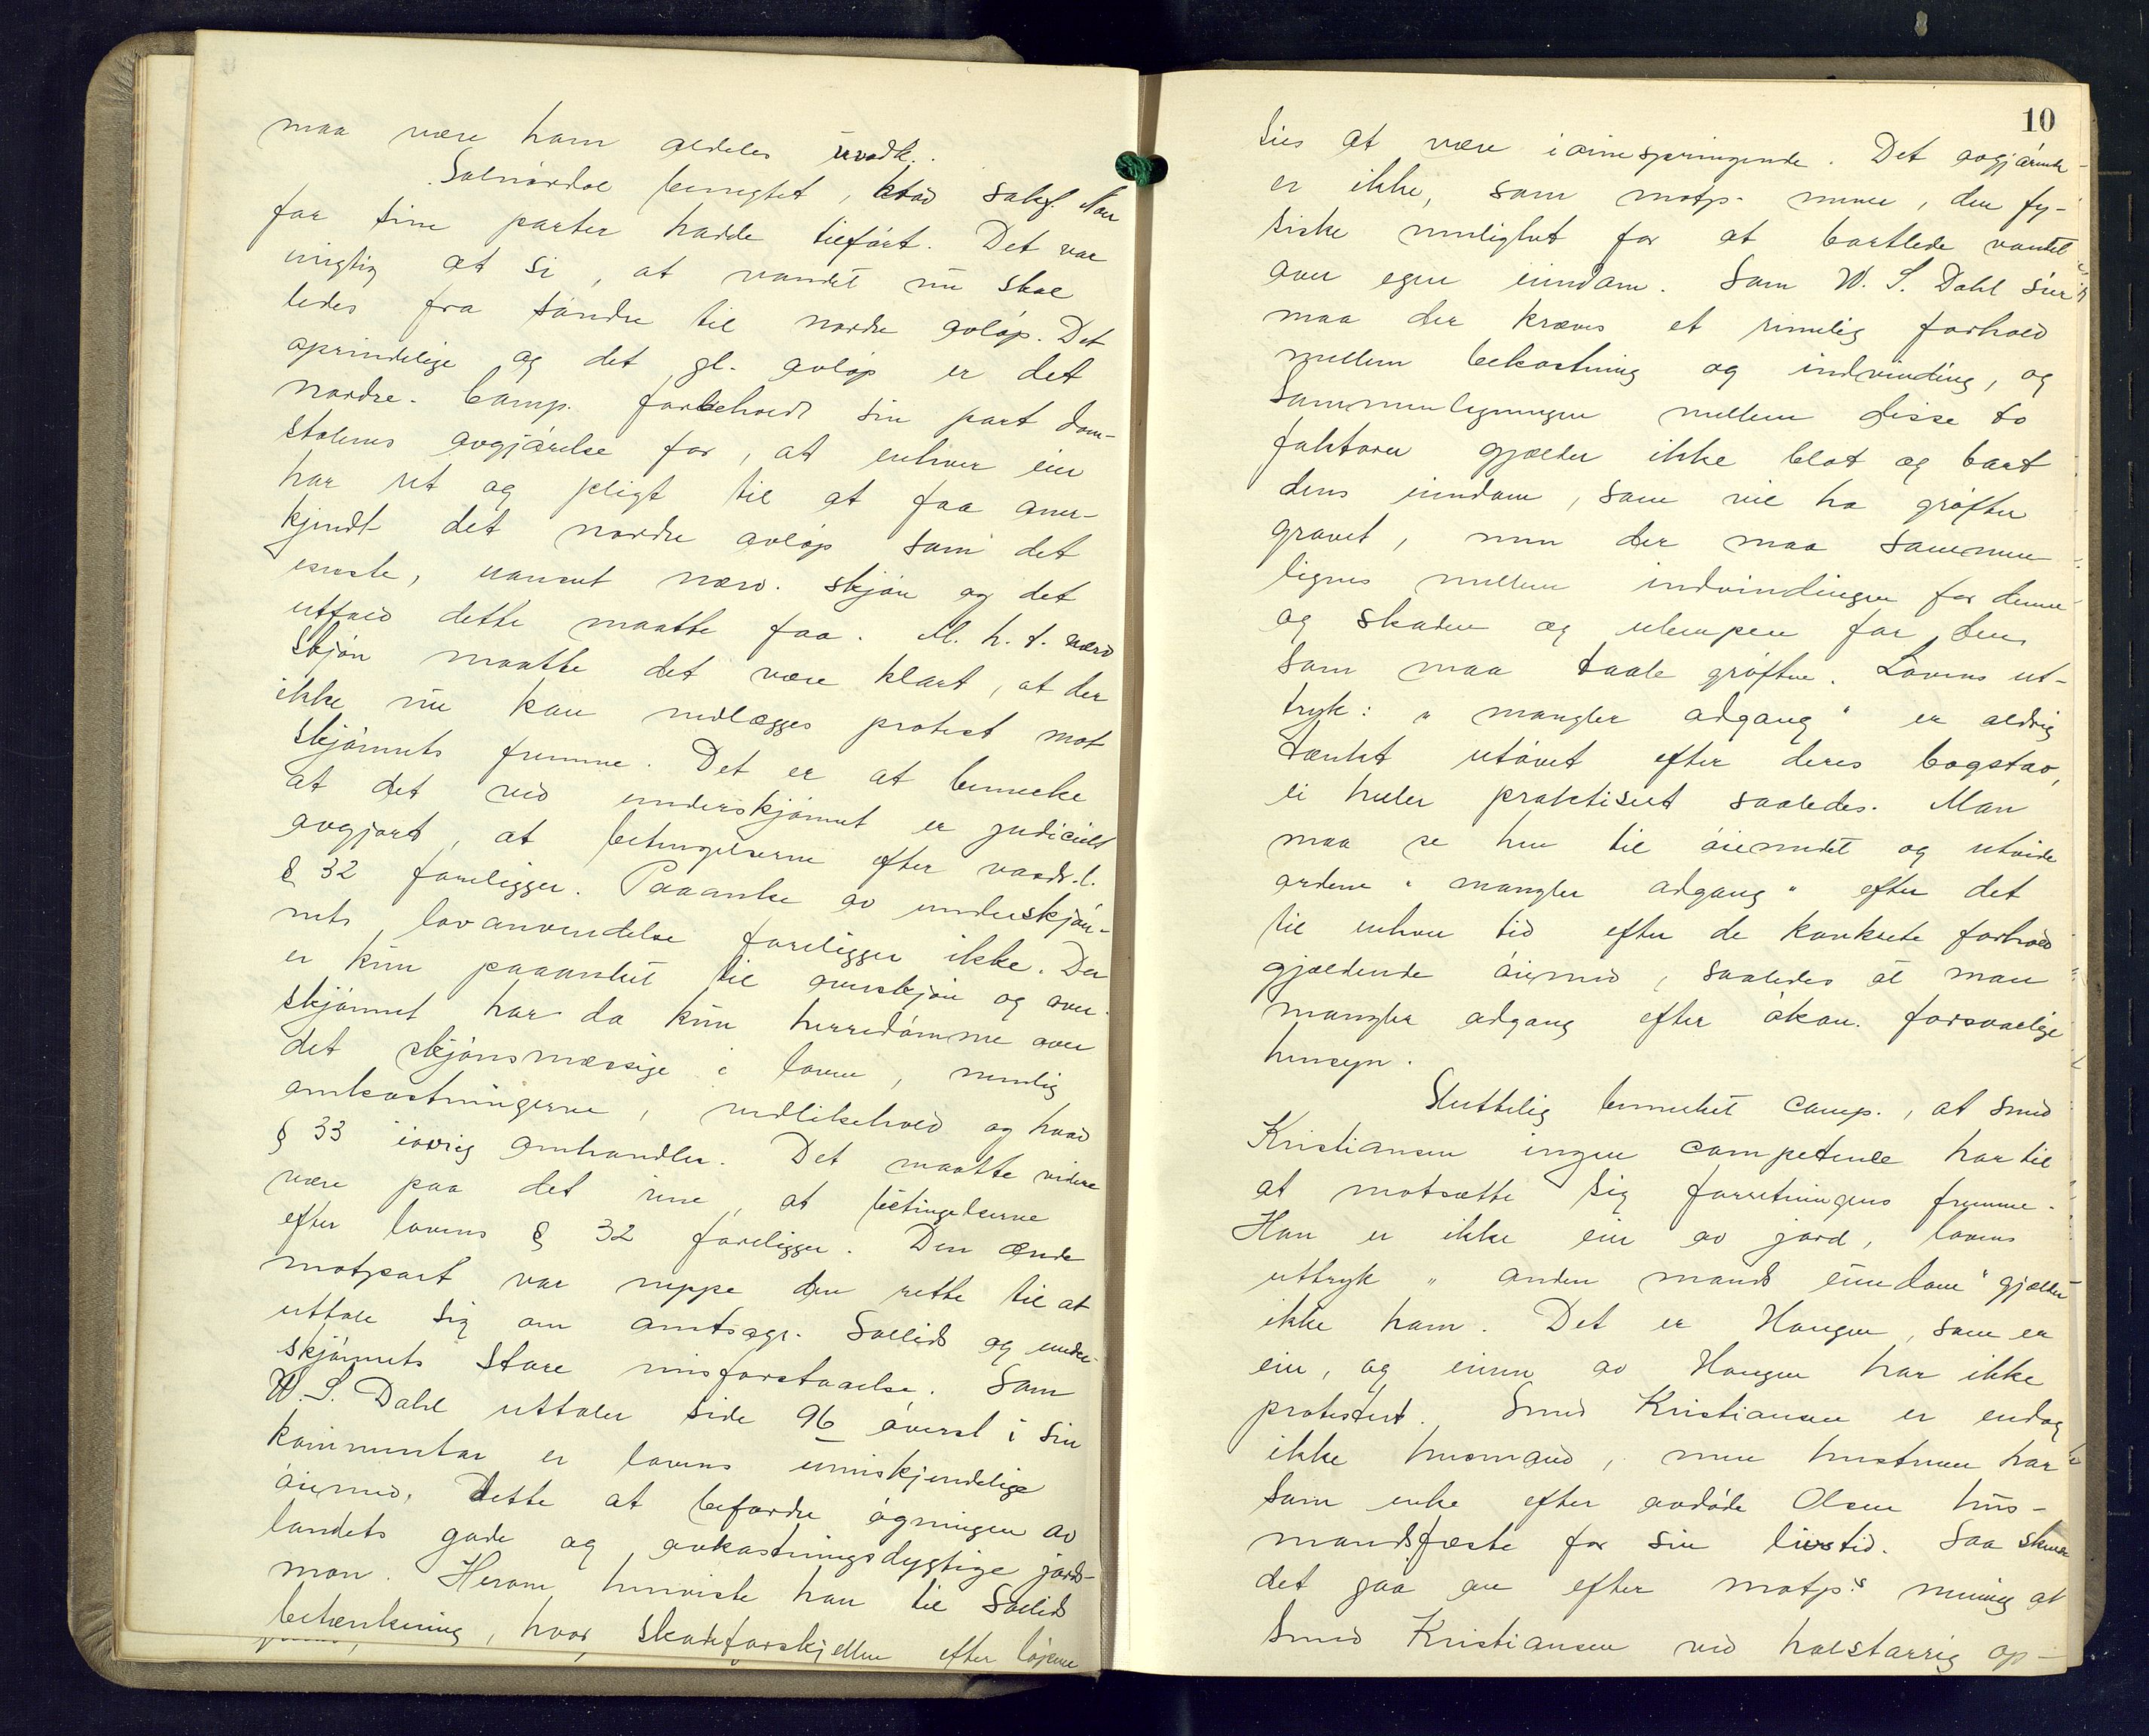 maa være ham aldeles uvedk.
Solnørdal benegtet, hvad sakf. Nau
for sine parter hadde tilført. Det var
urigtig at si, at vandet nu skal
ledes fra søndre til nordre avløp. Det
oprindelige og det gl. avløp er det
nordre. Comp. forbeholdt sin part dom-
stolens avgjørelse for, at enhver eier
har ret og pligt til at faa aner-
kjendt det nordre avløp som det
eneste, uanset nærv. skjøn og det
utfald dette maatte faa. M. h. t. nærv
skjøn maatte det være klart, at der
ikke nu kan nedlægges protest mot
skjønnets fremme. Det er at bemerke
at det ved underskjønnet er judicielt
avgjort, at betingelserne efter vasdr.l.
§ 32 foreligger. Paaanke av underskjøn-
nets lovanvendelse foreligger ikke. Der
er kun paaanket til overskjøn og over-
skjønnet har da kun herredømme over
det skjønsmæssige i loven, nemlig
omkostningerne, vedlikehold og hvad
§ 33 iøvrig omhandler. Det maatte videre
være paa det rene, at betingelserne
efter lovens § 32 foreligger. Den ærede
motpart var neppe den rette til at
uttale sig om amtsagr. Sollids og under-
skjønnets store misforstaaelse. Som
W. S. Dahl uttaler side 96 øverst i sin
kommentar er lovens umiskjendelige
øiemed. Dette at befordre øgningen av
landets gode og avkastningsdygtige jords-
mon. Herom henviste han til Sollids
betænkning, hvor skadeforskjellen efter løpene
10
sies at være iøinespringende. Det avgjørende
er ikke, som motp. mener, den fy-
siske mulighet for at bortlede vandet
over egen eiendom. Som W. S. Dahl sier
maa der kræves et rimelig forhold
mellem bekostning og indvinding, og
sammenligningen mellem disse to
faktorer gjælder ikke blot og bart
dens eiendom, som vil ha grøften
gravet, men der maa sammen-
lignes mellem indvindingen for denne
og skaden og ulempen for den,
som maa taale grøften. Lovens ut-
tryk: "mangler adgang" er aldrig
tænkt utøvet efter deres bogstav,
ei heller praktisert saaledes. Man
maa se hen til øiemedet og utvide
ordene "mangler adgang" efter det
til enhver tid efter de konkrete forhold
gjældende øiemed, saaledes at man
mangler adgang efter økon. forsvarlige
hensyn.
Sluttelig bemerket comp., at smed
Kristiansen ingen competence har til
at motsætte sig forretningens fremme.
Han er ikke eier av jord, lovens
uttryk "anden mands eiendom" gjælder
ikke ham. Det er Haugen, som er
eier, og eieren av Haugen har ikke
protestert. Smed Kristiansen er endog
ikke husmand, men hustruen har
som enke efter avdøde Olsen hus-
mandsfæste for sin livstid. Saa skulde
det gaa an efter motp's mening at
smed Kristiansen ved halstarrig op-